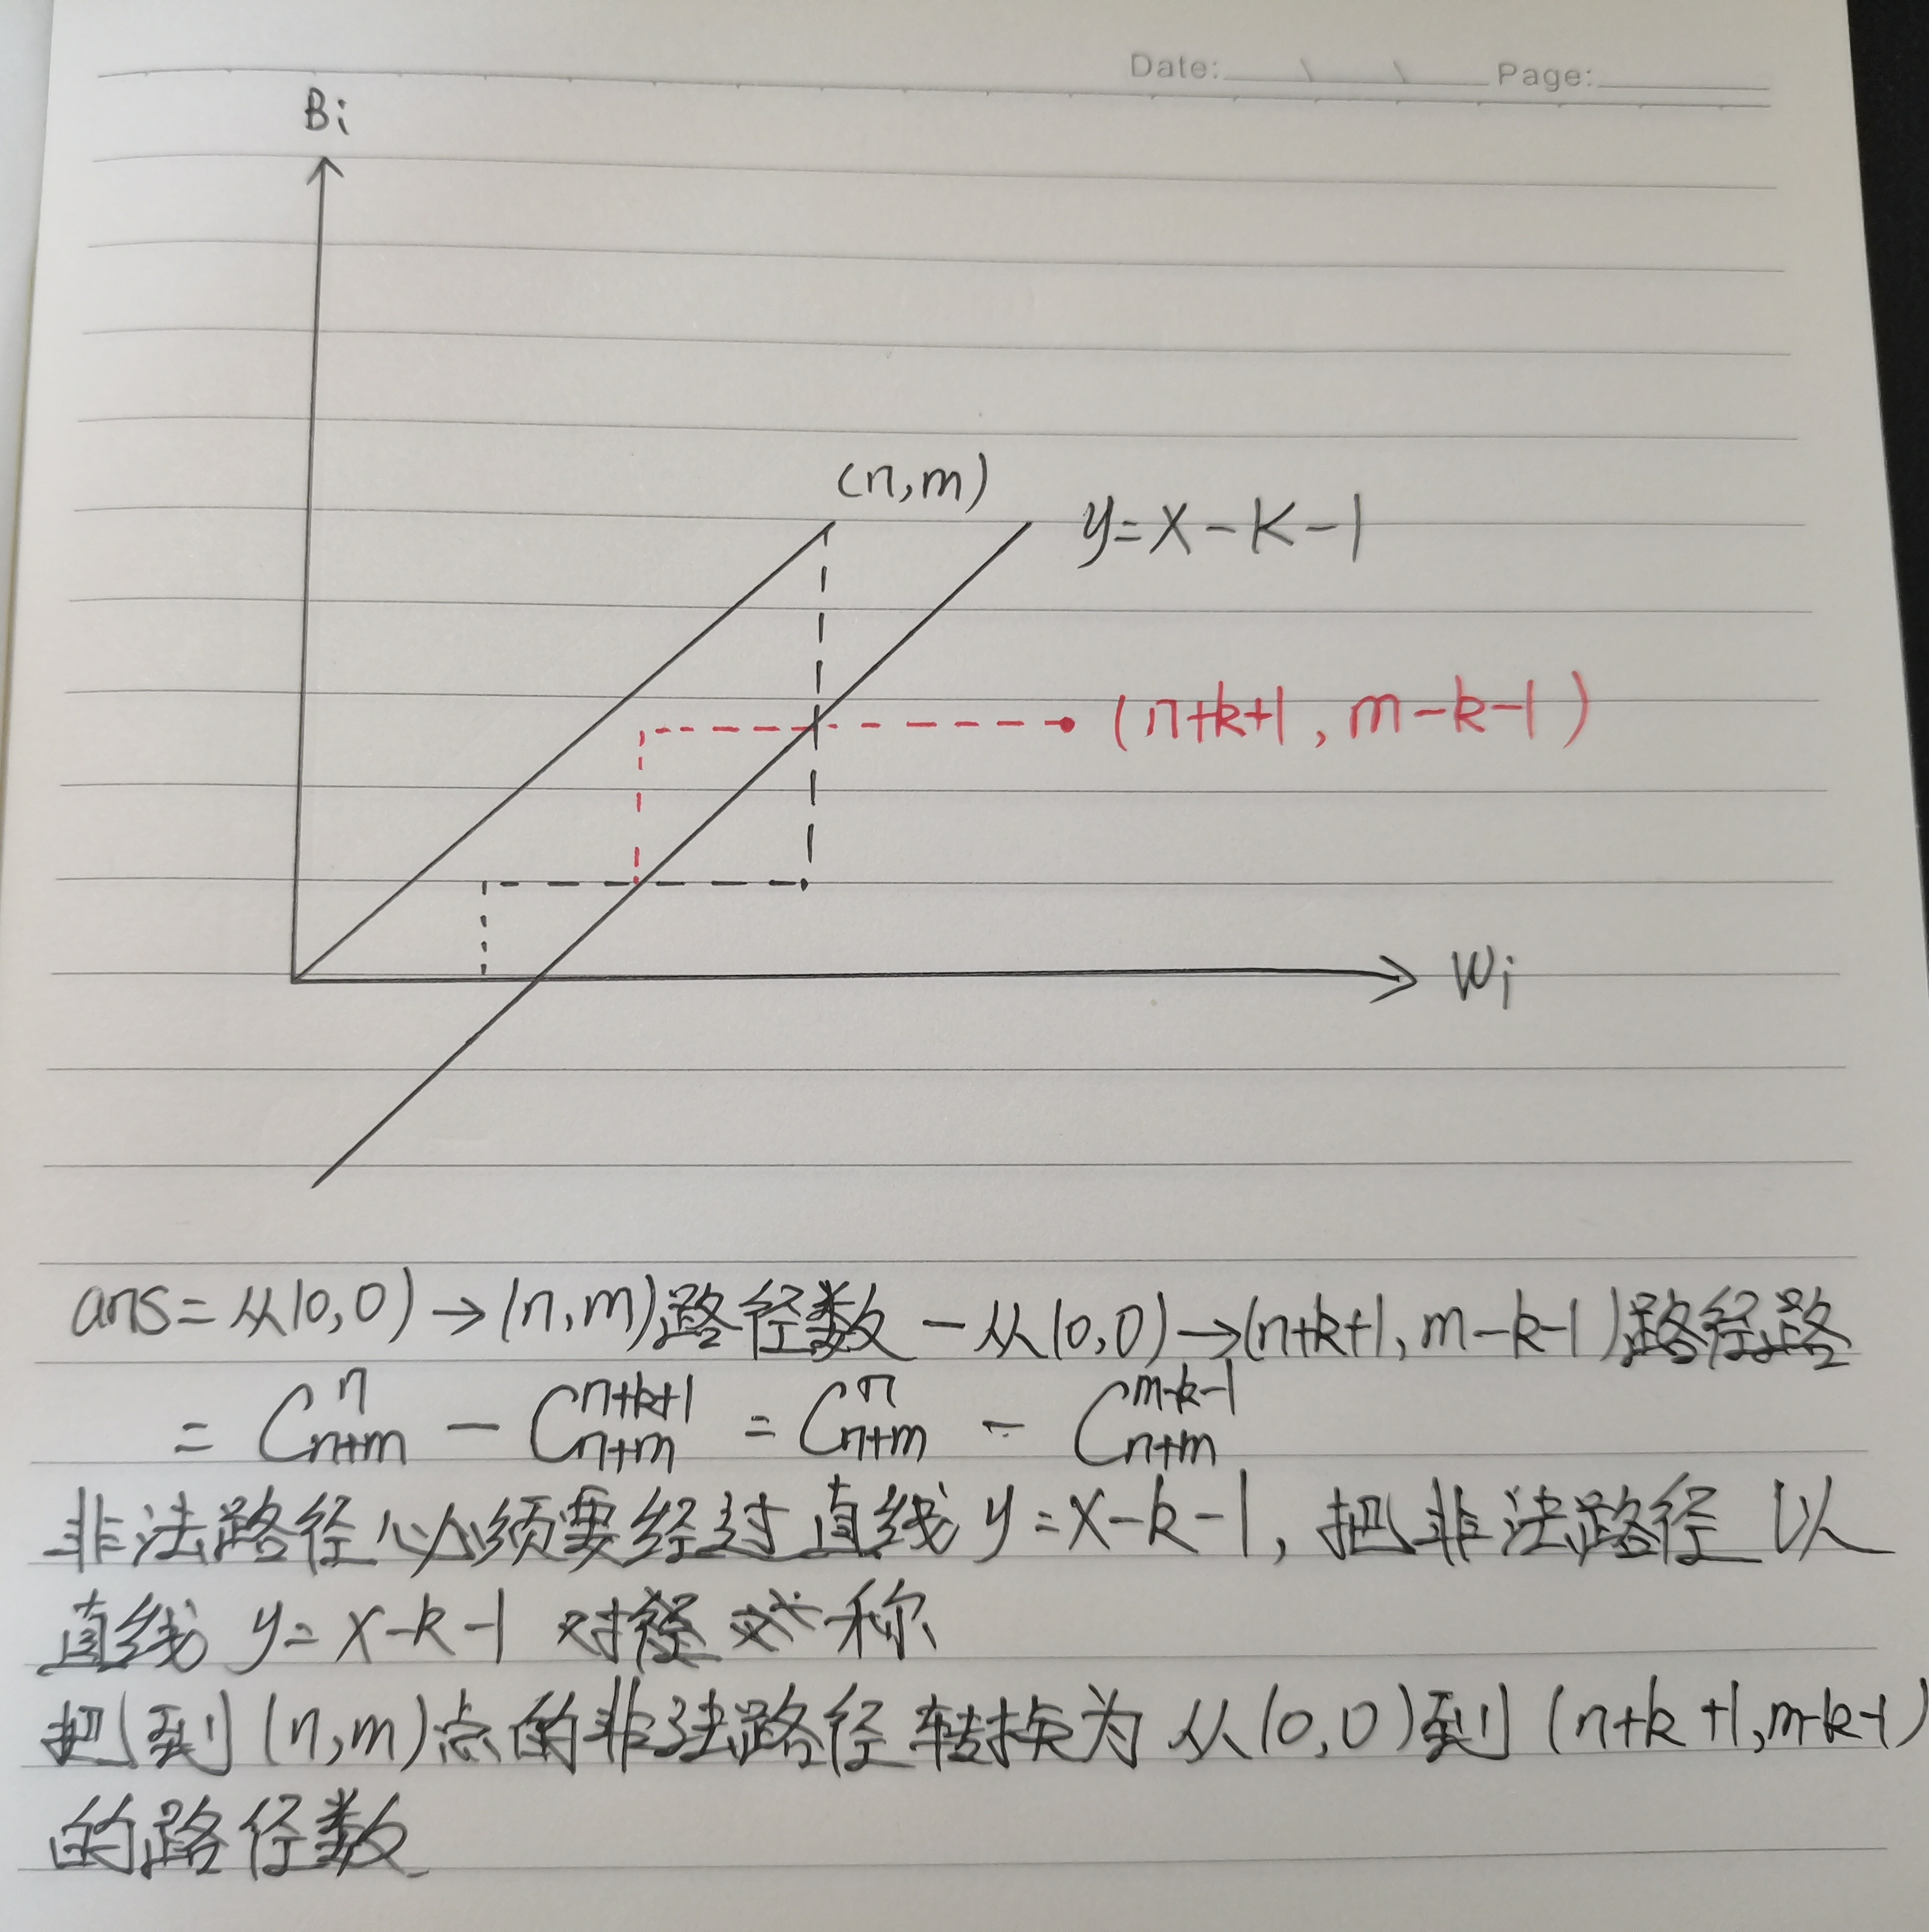 Date: Page:
Bi
(n,m)
y=x-k-1
(n+k+1, m-k-1)
Wi
ans=从(0,0)→(n,m)路径数-从(0,0)→(n+k+1,m-k-1)路径路
= C_{n+m}^{n} - C_{n+m}^{n+k+1} = C_{n+m}^{n} - C_{n+m}^{m-k-1}
非法路径必须要经过直线y=x-k-1,把非法路径以
直线 y=x-k-1 对 称
把到(n,m)点的非法路径转换为从(0,0)到(n+k+1,m-k-1)
的路径数